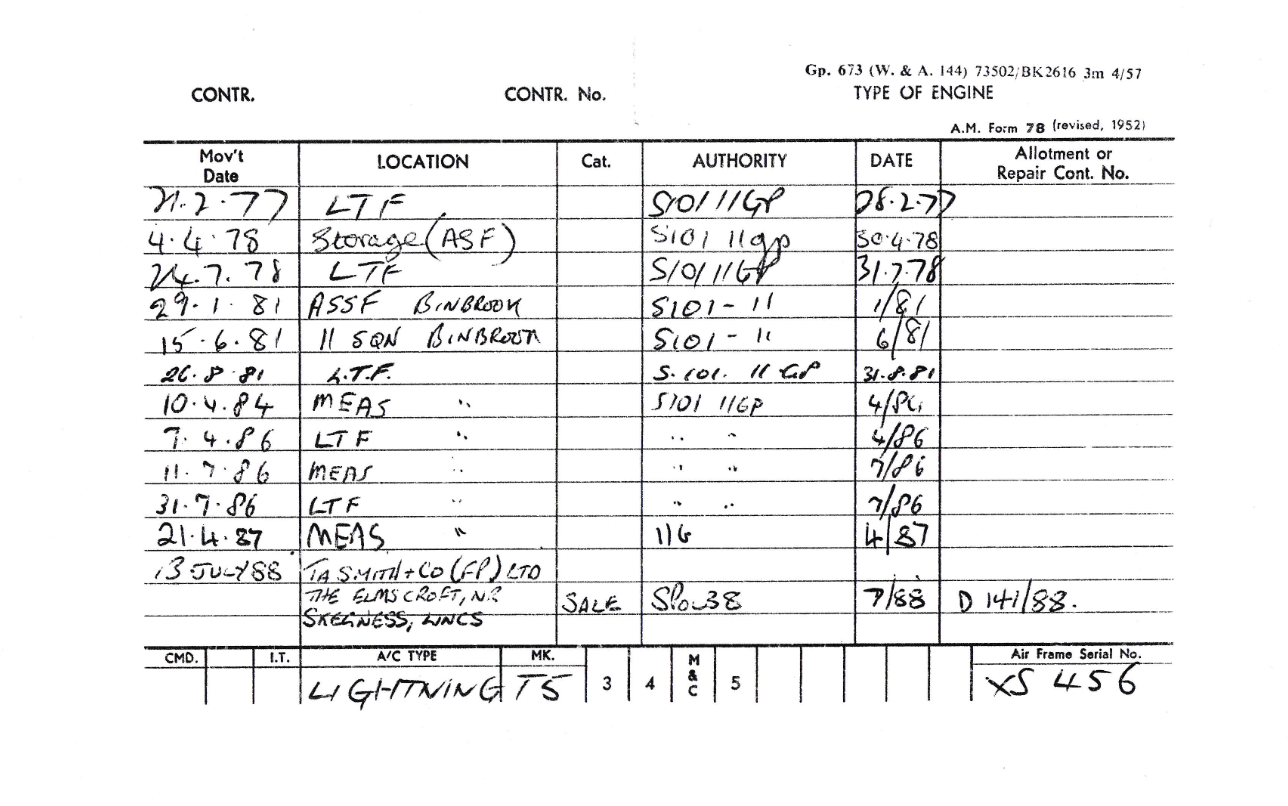 Gp. 673 (W. & A. 144) 73502/BK2616 3m 4/57
CONTR. CONTR. No. TYPE OF ENGINE
A.M. Form 78 (revised, 1952)
Mov't Date LOCATION Cat. AUTHORITY DATE Allotment or Repair Cont. No.
21.2.77 LTF S101 11GP 28.2.77
4.4.78 Storage (ASF) S101 11gp 30.4.78
24.7.78 LTF S101 11GP 31.7.78
29.1.81 ASSF BINBROOK S101-11 1/81
15.6.81 11 SQN BINBROOK S101-11 6/81
26.8.81 L.T.F. S.101. 11 GP 31.8.81
10.4.84 MEAS " S101 11GP 4/84
7.4.86 LTF " " " 4/86
11.7.86 MEAS " " " 7/86
31.7.86 LTF " " " 7/86
21.4.87 MEAS " 11G 4/87
13 JULY 88 TA SMITH + CO (FP) LTD
THE ELMS CROFT, NR SALE 7/88 D 141/88.
SKEGNESS, LINCS
CMD. I.T. A/C TYPE MK. M & C Air Frame Serial No.
LIGHTNING T5 3 4 5 XS 456